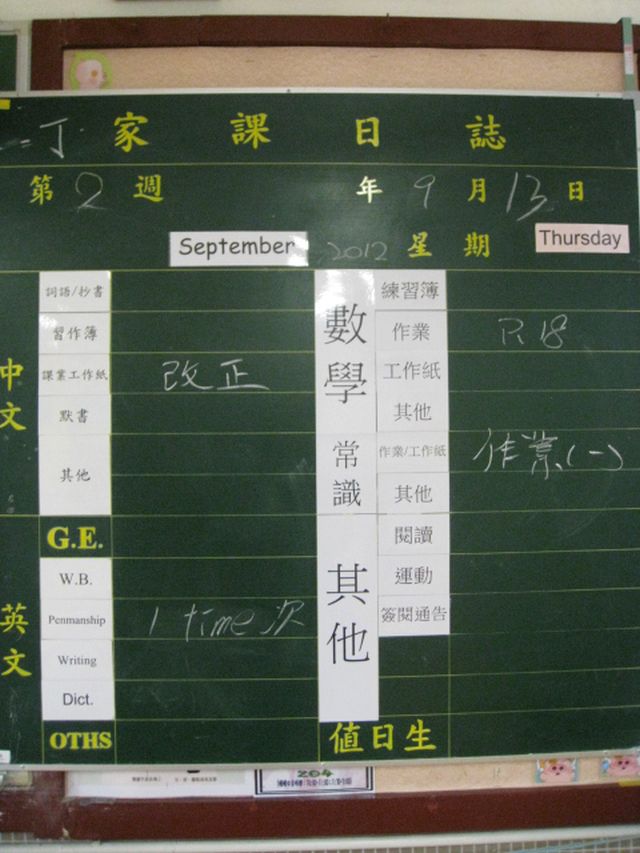 二丁 家課日誌
第2週 年9月13日
September 2012 星期 Thursday
中文
詞語/抄書
習作簿
課業工作紙 改正
默書
其他
英文
G.E.
W.B.
Penmanship 1 time 次
Writing
Dict.
OTHS
數學
練習簿
作業 P.18
工作紙
其他
常識
作業/工作紙 作業(一)
其他
其他
閱讀
運動
簽閱通告
值日生
264